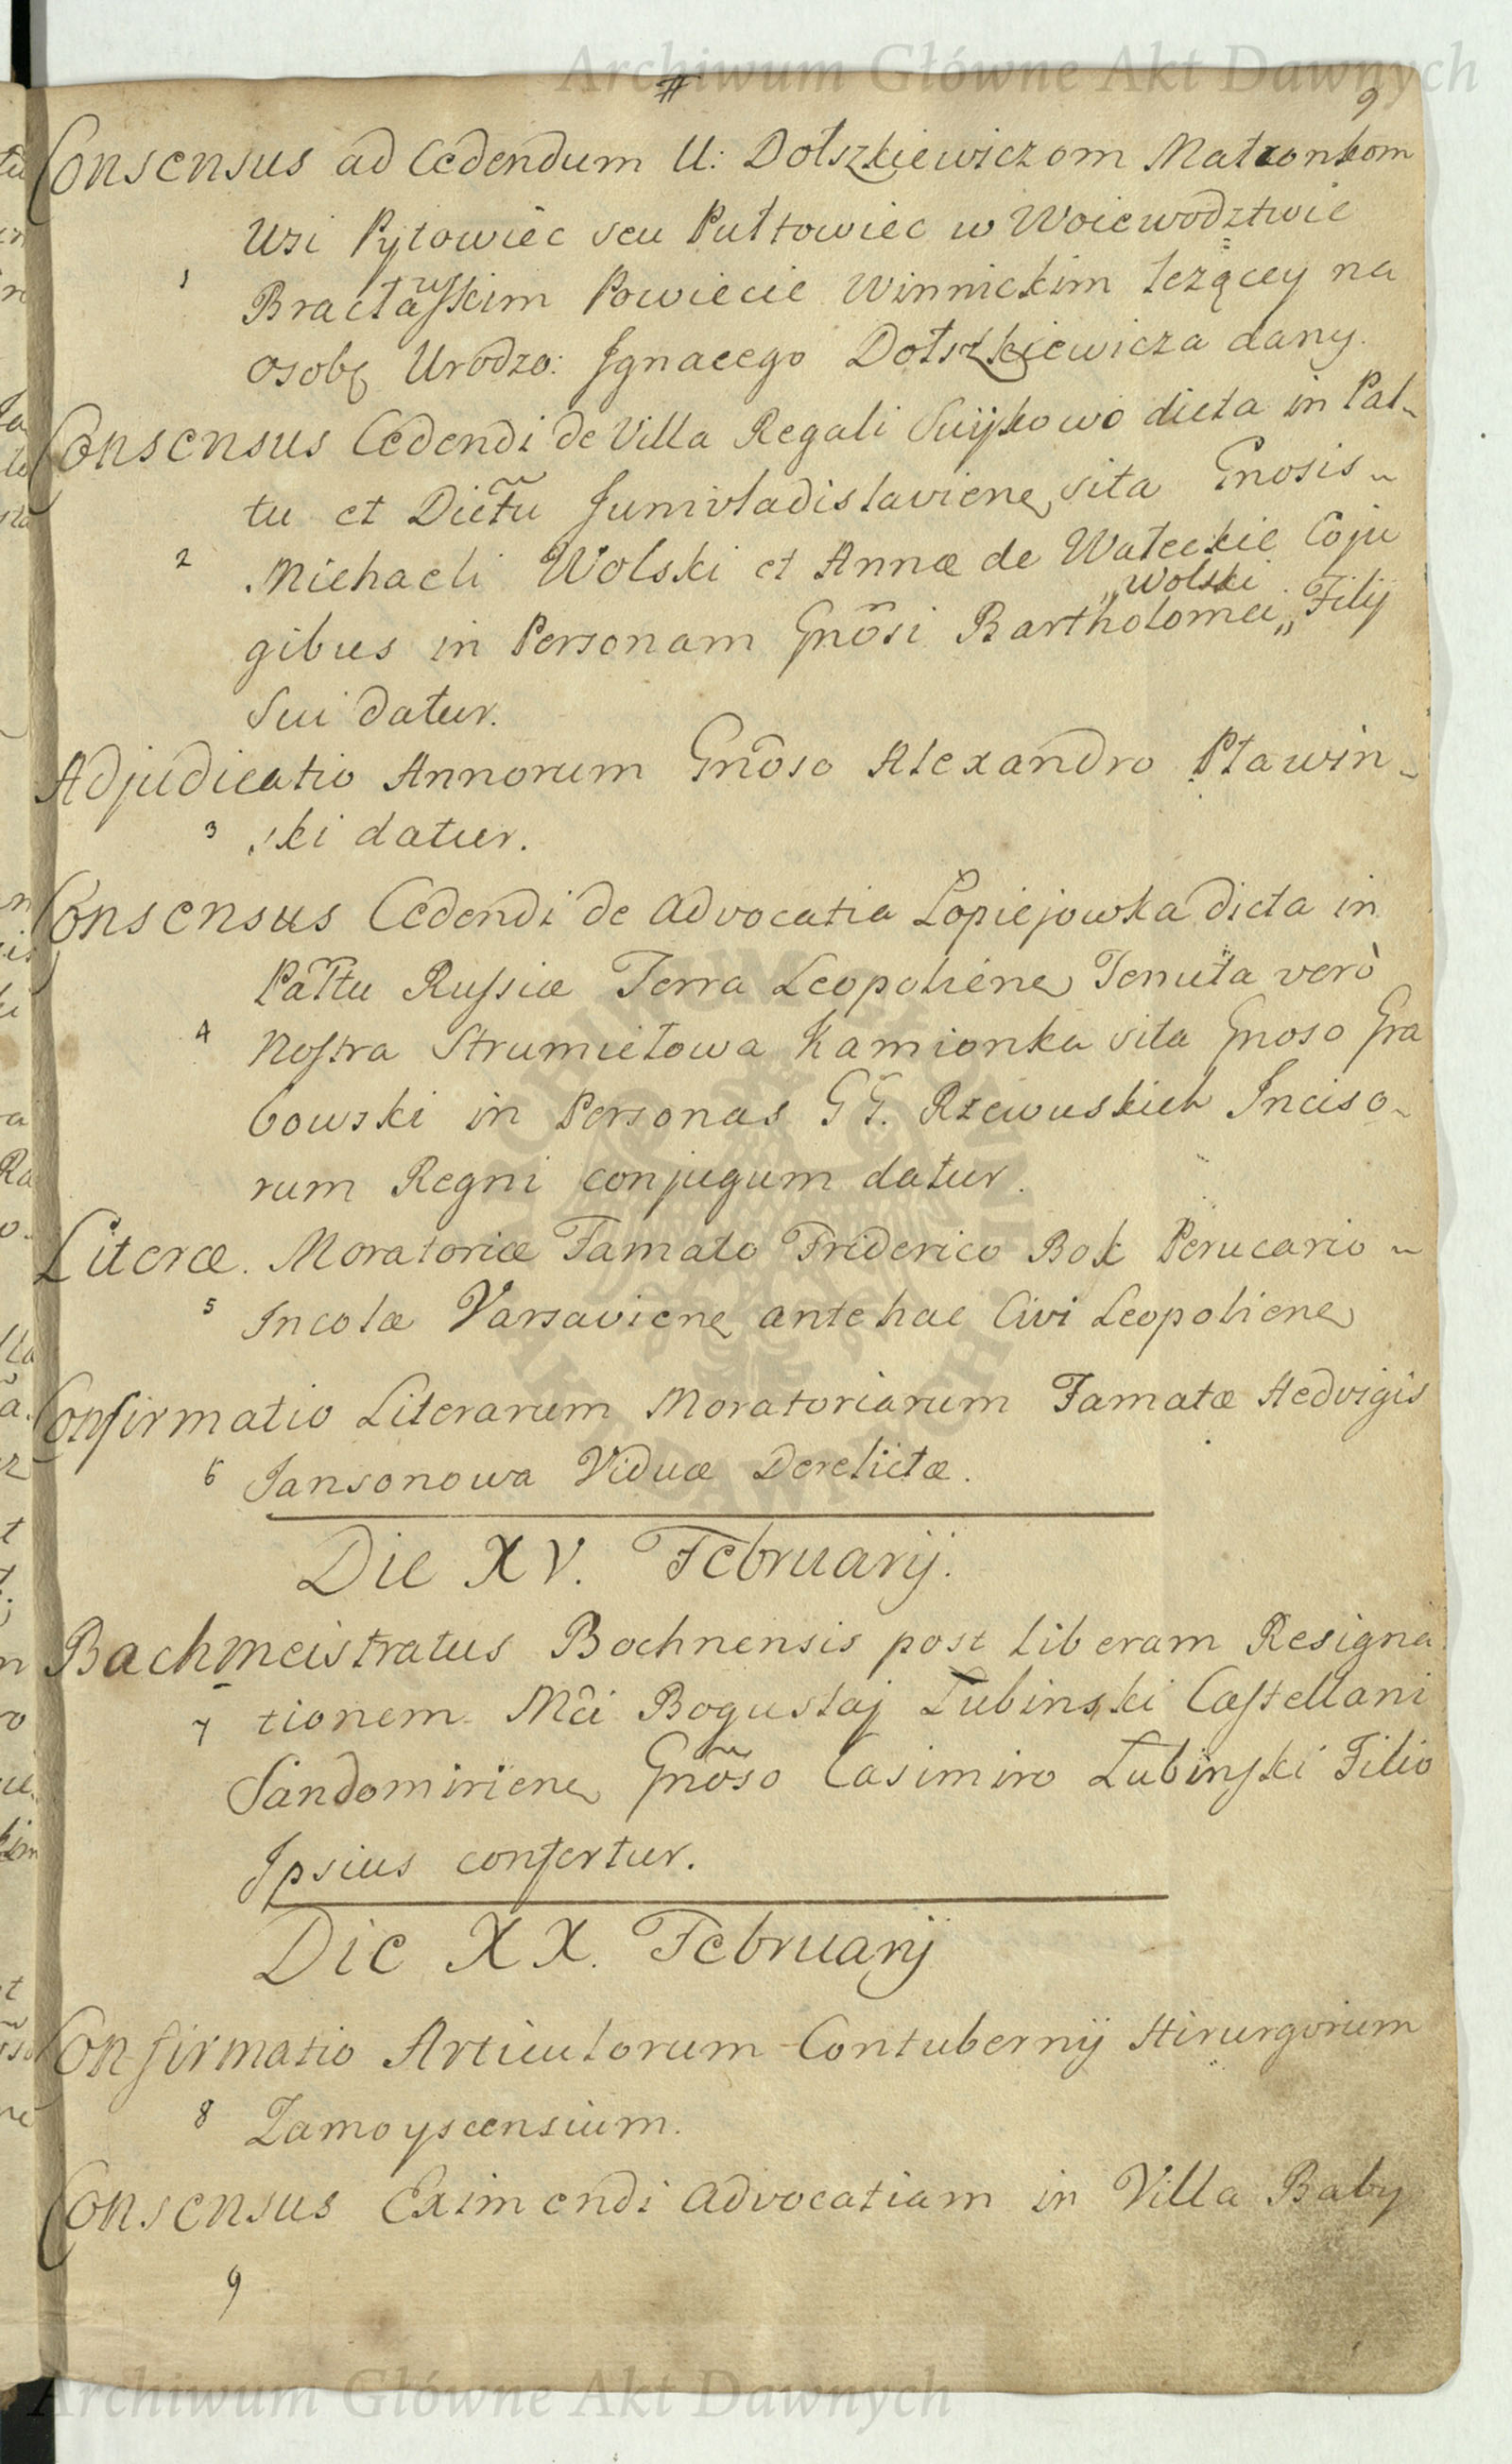 Archiwum Główne Akt Dawnych
# 9
Consensus ad Cedendum U: Dołszkiewiczom Małżonkom
Wsi Pytowiec seu Pułtowiec w Woiewodztwie
1 Bracławskim Powiecie Winnickim leżącey na
osobę Urodzo: Jgnacego Dołszkiewicza dany.
Consensus Cedendi de Villa Regali Suykowo dicta in Pal-
tu et Dictũ Junivladislaviene sita Gnosis
2 Michaeli Wolski et Annæ de Wałeckie Coju
gibus in Personam Gnõsi Bartholomei „Wolski„ Filij
Sui datur.
Adjudicatio Annorum Gnõso Alexandro Pławin-
3 ski datur.
Consensus Cedendi de Advocatia Łopiejowka dicta in
Pãltu Russiæ Terra Leopoliene Tenuta verò
4 Nostra Strumiełowa Kamionka sita Gnoso Gra
bowski in Personas GG. Rzewuskich Inciso-
rum Regni conjugum datur.
Literæ Moratoriæ Famato Friderico Bok Perucario
5 Incolæ Varsaviene antehac Civi Leopoliene
Confirmatio Literarum Moratoriarum Famatæ Hedvigis
6 Jansonowa Viduæ Derelictæ.
Die XV. Februarij.
Bachmeistratus Bochnensis post liberam Resigna
7 tionem Mci Bogusłaj Łubinski Castellani
Sandomiriene Gnõso Casimiro Łubinski Filio
Ipsius confertur.
Die XX. Februarij
Confirmatio Articulorum Contubernij Hirurgorum
8 Zamoyscensium.
Consensus Eximendi Advocatiam in Villa Baby
9
Archiwum Główne Akt Dawnych